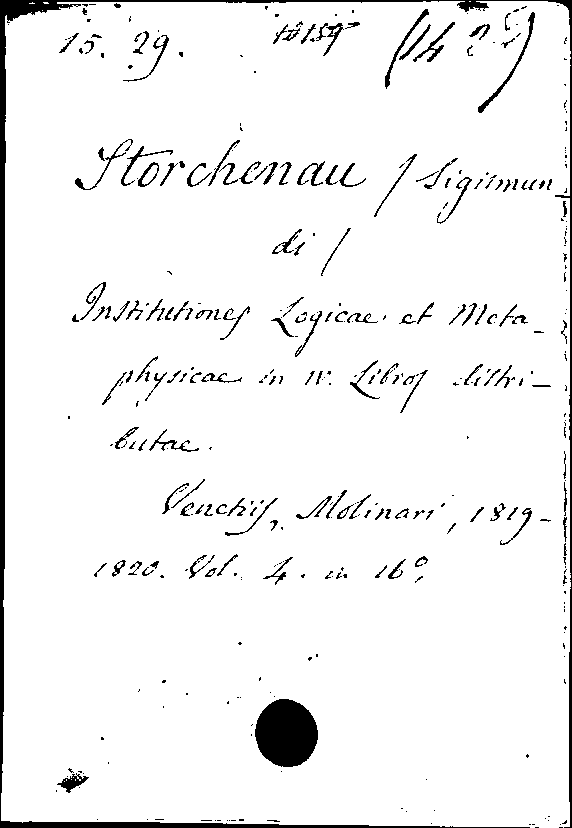 15. 29.
Storchenau / Sigismun_
di /
Institutiones Logicae et Meta_
physicae in IV. Libros distri_
butae.
Venetiis, Molinari, 1819-
1820. Vol. 4. in 16º.